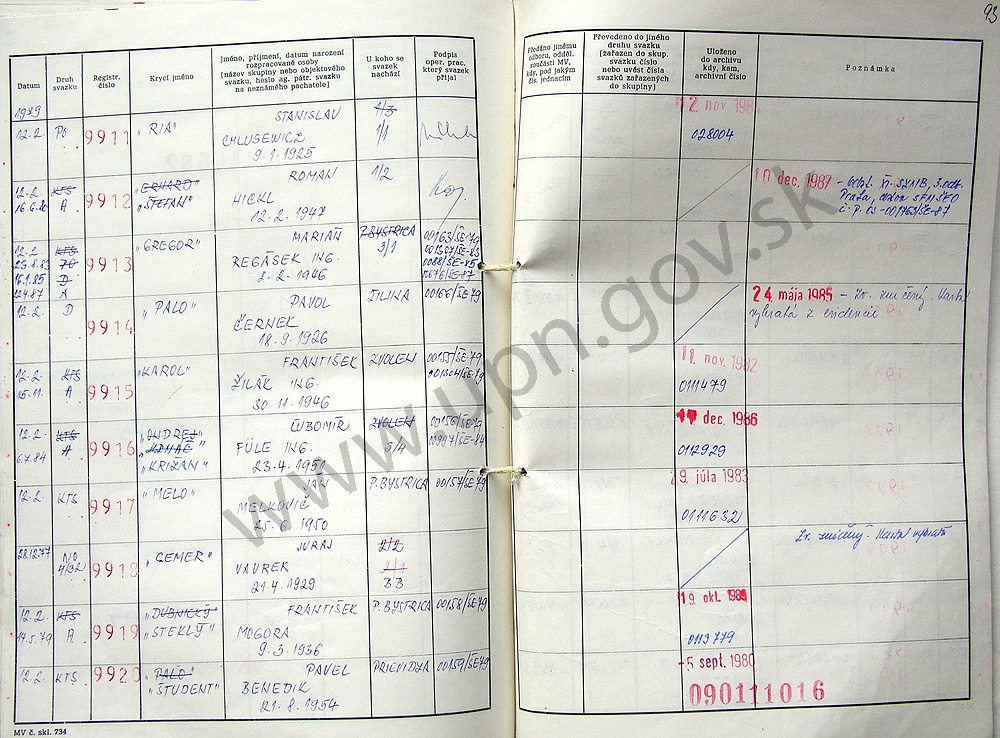 93
Datum
Druh svazku
Registr. číslo
Krycí jméno
Jméno, příjmení, datum narození
rozpracované osoby
(název skupiny nebo objektového
svazku, heslo ag. pátr. svazku
na neznámého pachatele)
U koho se
svazek
nachází
Podpis
oper. prac.
který svazek
přijal
Předáno jinému
odboru, odděl.
součásti MV,
kdy, pod jakým
čís. jednacím
Převedeno do jiného
druhu svazku
(zařazen do skup.
svazku číslo
nebo uvést čísla
svazků zařazených
do skupiny)
Uloženo
do archivu
kdy, kam,
archivní číslo
Poznámka
1979
12.2. PO 9911 "RIA" STANISLAV 1/3
CHLUSEWICZ 1/1
9.1.1925
2 nov 198
028004
12.2. KTS 9912 "ERHARD" ROMAN 1/2
A "ŠTEFAN" HICKL
12.2.1947
10 dec. 1987
12.2. KTS 9913 "GREGOR" MARIÁN P.BYSTRICA 00163/ŠE-79
REGÁSEK ING. 3/1
16.1.85 D 8.2.1946 0088/ŠE-85
22.4.87 A
12.2. D 9914 "PALO" PAVOL ŽILINA 00166/ŠE-79
ČERNEK
18.9.1926
24. mája 1985 – Zv. zničený. Karta
vybratá z evidencie
12.2. KTS 9915 "KAROL" FRANTIŠEK ZVOLEN 00155/ŠE-79
15.11. A ŽILÁK ING.
30.11.1946
11. nov. 1982
0111479
12.2. KTS 9916 "ONDREJ" ĽUBOMÍR ZVOLEN 00156/ŠE-79
6.7.84 A FÜLE ING. 5/4
"KRIŽAN" 23.4.1951
dec. 1986
0112929
12.2. KTS 9917 "MELO" JÁN P.BYSTRICA 00157/ŠE-79
MELKOVIČ
25.6.1950
29. júla 1983
0111632
28.12.77 9918 "CEMER" JURAJ 2/2
VAVREK
21.4.1929 33
Zv. zničený. Karta vybratá
12.2. KTS 9919 "DUBNICKÝ" FRANTIŠEK P.BYSTRICA 00158/ŠE-79
14.5.79 A "STEKLÝ" MOGORA
9.3.1936
19. okt. 1989
0113779
12.2. KTS 9920 "PALO" PAVEL PRIEVIDZA 00159/ŠE-79
"ŠTUDENT" BENEDIK
21.8.1954
-5 sept. 1980
090111016
MV č. skl. 734
www.upn.gov.sk